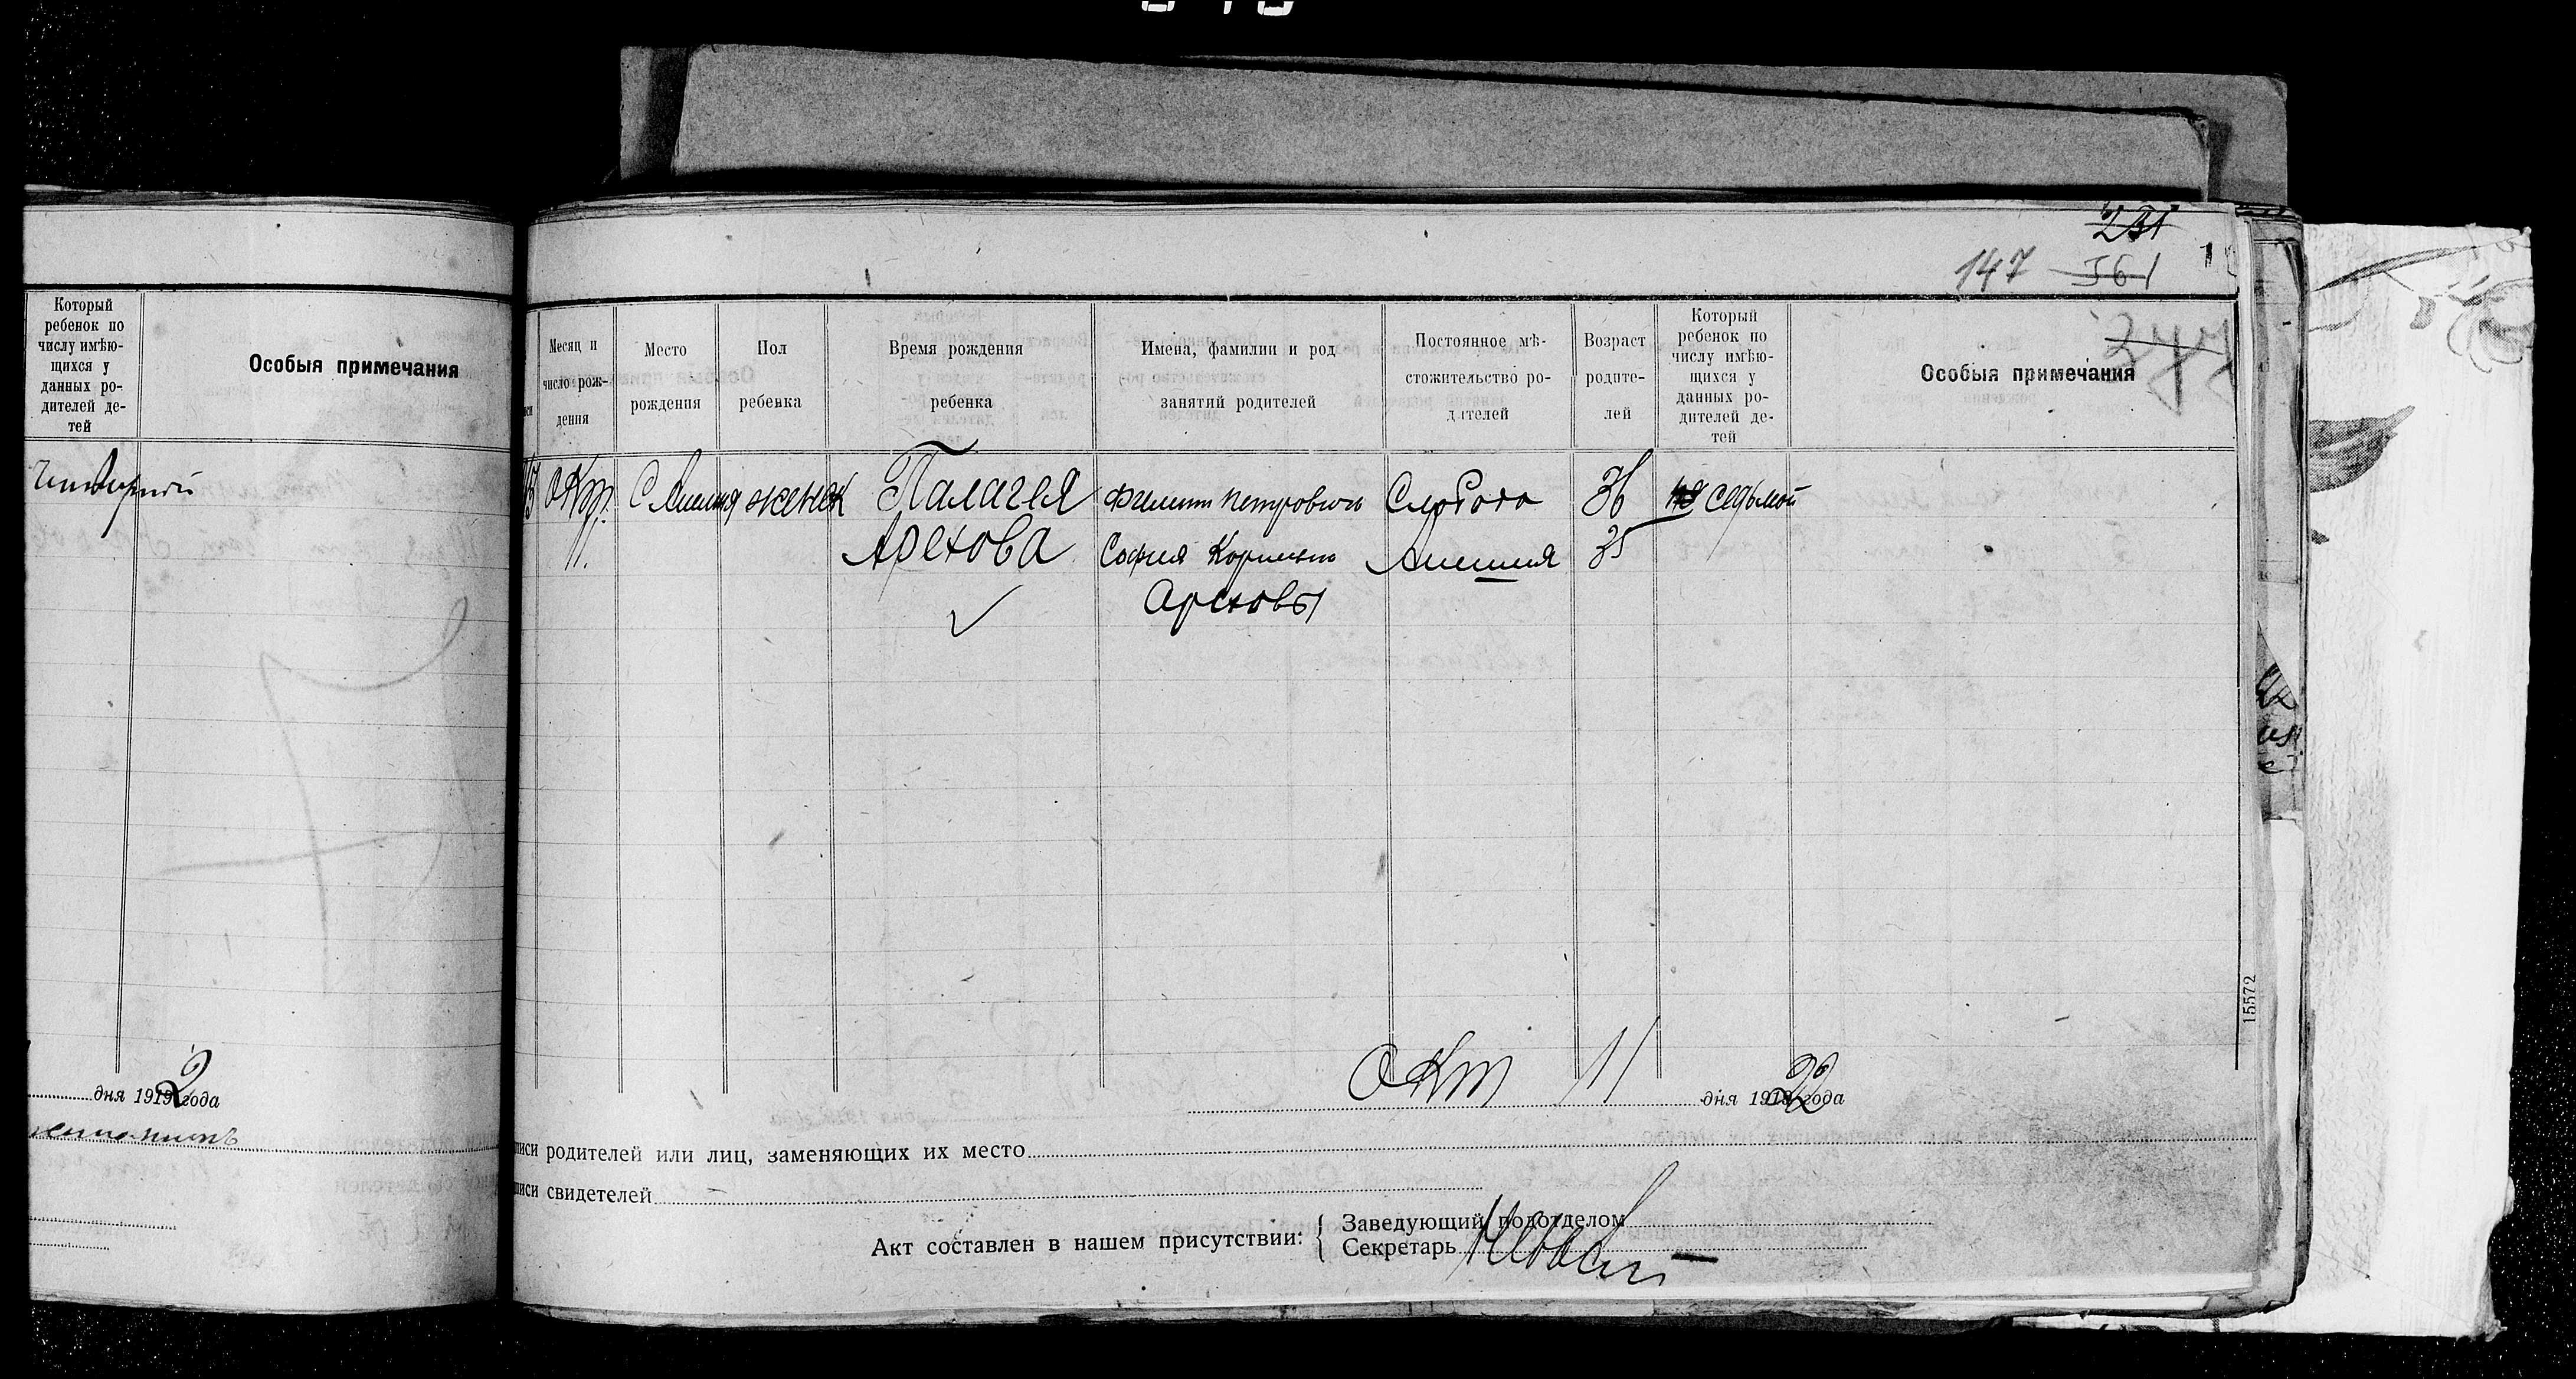 231
147 561
377
Который
ребенок по
числу имѣю-
щихся у
данных ро-
дителей де-
тей
Особыя примечания
дня 1919 2 года
Месяц и
число рож-
дения
Место
рождения
Пол
ребенка
Время рождения
ребенка
Имена, фамилии и род
занятий родителей
Постоянное мѣ-
стожительство ро-
дителей
Возраст
родите-
лей
Который
ребенок по
числу имѣю-
щихся у
данных ро-
дителей де-
тей
Особыя примечания
Окт. женск Палагея Петрович Слобода 36 седьмой
11. Арехова София 35
Ареховы
Окт 11 дня 1919 22 года
писи родителей или лиц, заменяющих их место
писи свидетелей
Акт составлен в нашем присутствии:
Заведующий подотделом
Секретарь
15572